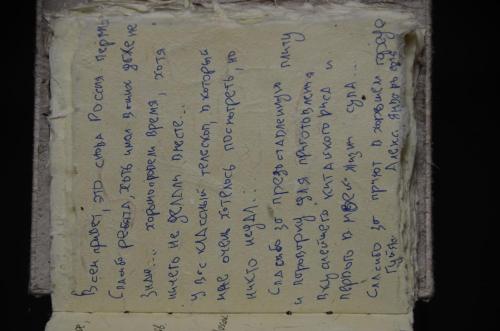 Всем привет, это снова Россия Пермь.
Спасибо ребята, хоть имён ваших даже не
знаю... хорошо провели время, хотя
ничего не делали вместе...
У вас классный телескоп, в который
мне очень хотелось посмотреть, но
никто не дал...
Спасибо за предоставленную плиту
и поваровку для приготовления
вкуснейшего китайского риса и
первого в моей жизни супа...
Спасибо за приют в хорошем городе
Алекс Январь